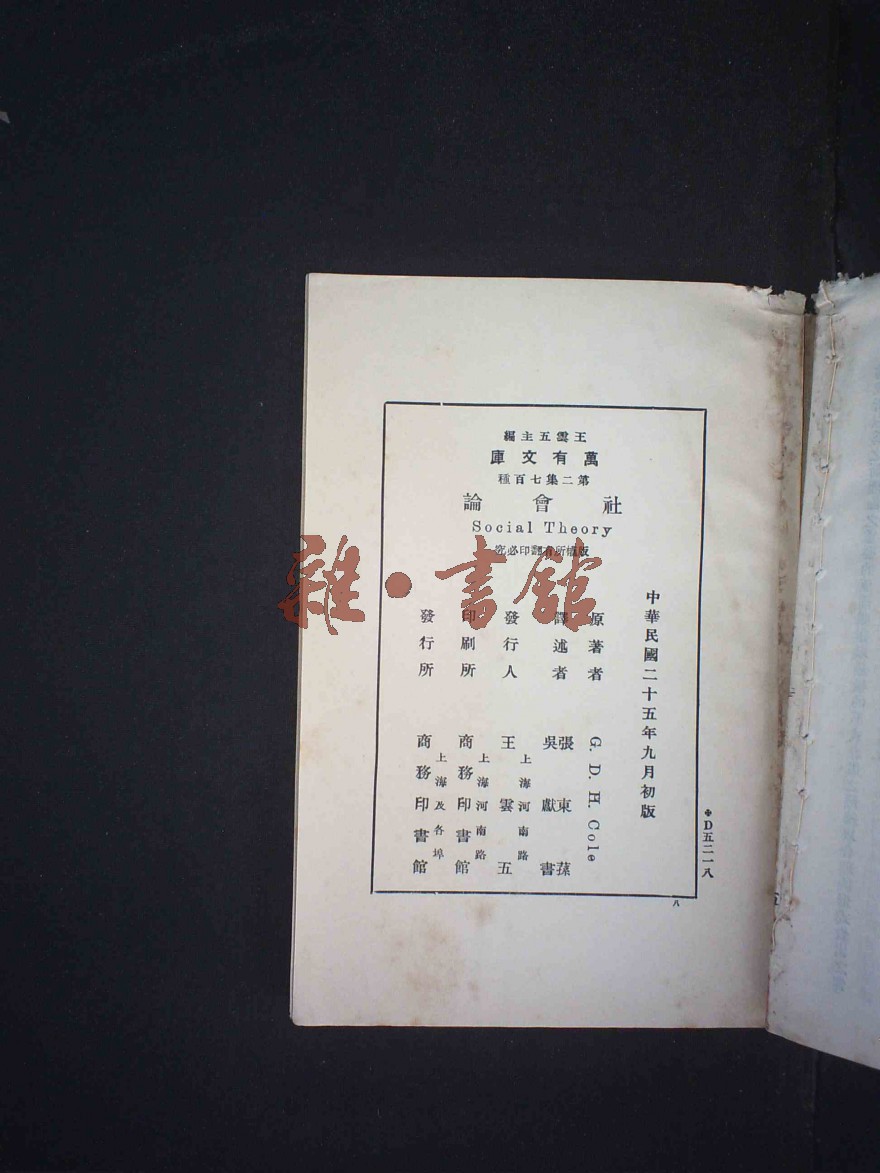 王雲五主編
萬有文庫
第二集七百種
社會論
Social Theory
版權所有翻印必究
雜·書館
中華民國二十五年九月初版
原著者 G. D. H. Cole
譯述者 張東蓀 吳獻書
發行人 王雲五 上海河南路
印刷所 商務印書館 上海河南路
發行所 商務印書館 上海及各埠
D五二一八
八